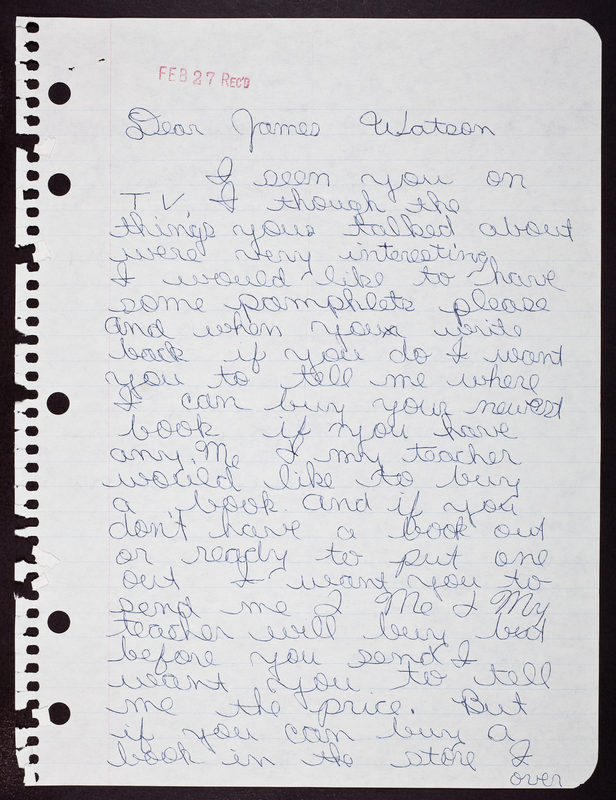 FEB 27 REC'D
Dear James Watson
I seen you on
T V. I though the
things your talked about
were very interesting
I would like to have
some pamphlets please
and when your write
back if you do I want
you to tell me where
I can buy your newest
book if you have
any. Me I my teacher
would like to buy
a book. And if you
don't have a book out
or ready to put one
out I want you to
send me 2 Me & My
teacher will buy but
before you send I
want you to tell
me the price. But
if you can buy a
book in the store I
over